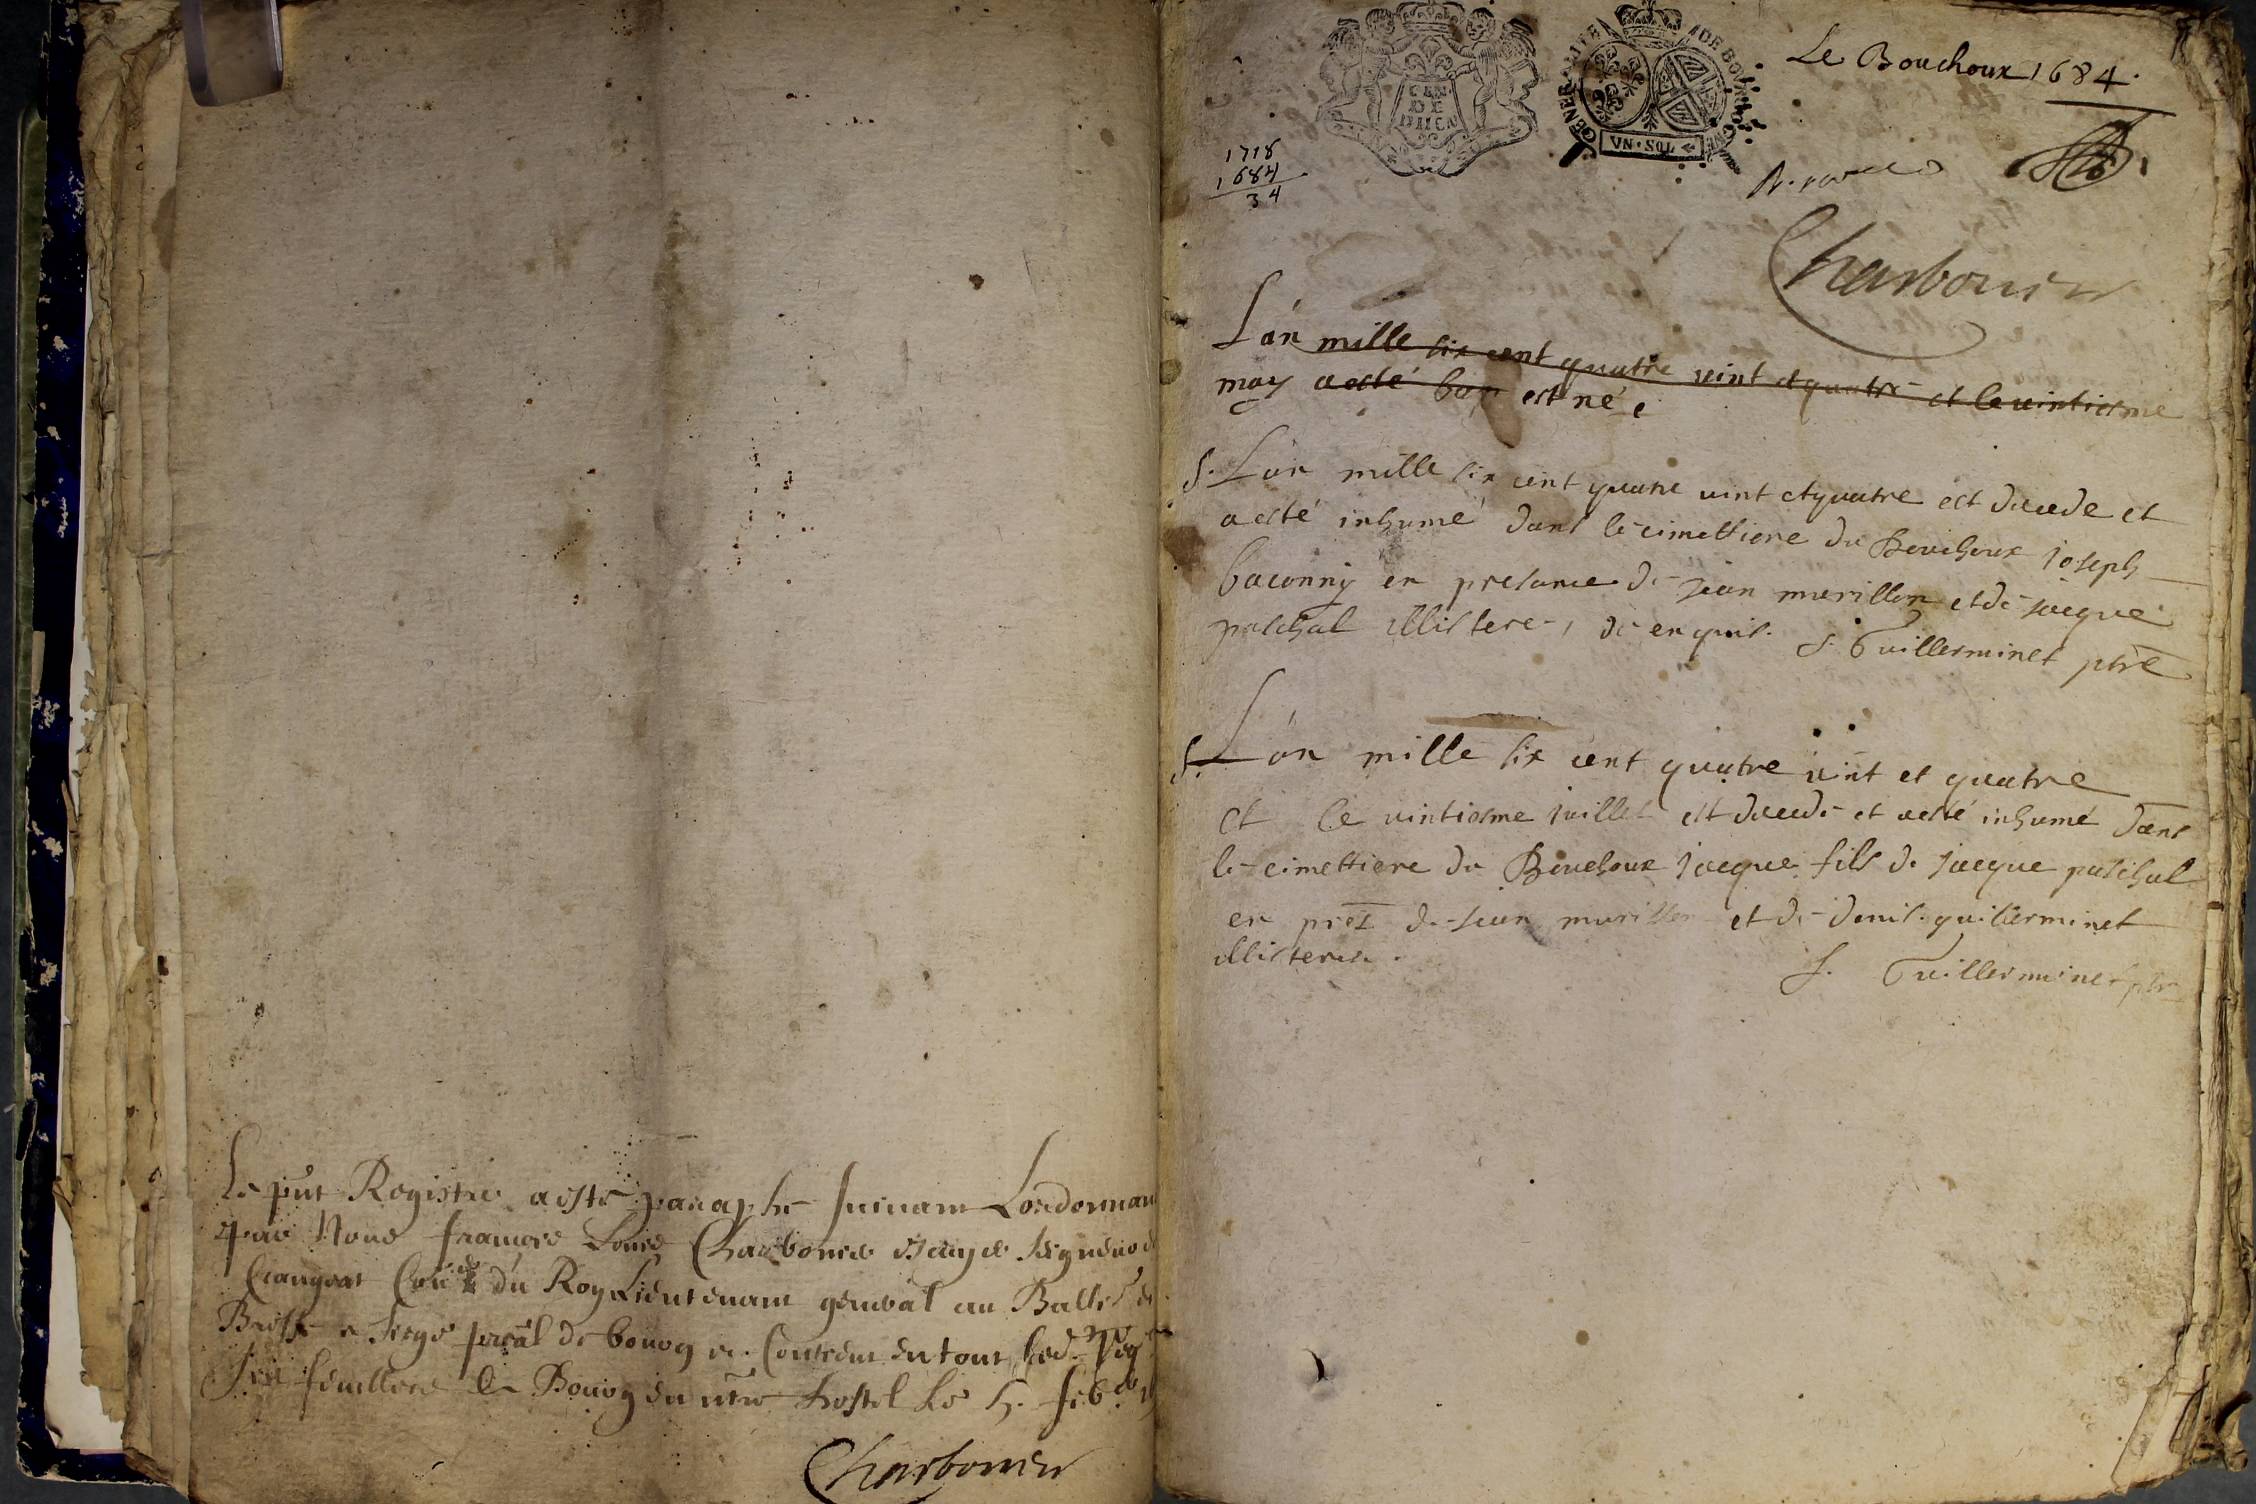 Le pnt Registre a esté paraphé suivant Lordonnan
par Nous françois Louis Charbonier Escuyer Seigneur de
Crangeat Con.er du Roy Lieutenant general au Balle de
Bresse et siege pre.al de bourg et. Contient en tout
six feuillets A Bourg en ntre hostel Le 5. feb
Charbonier
Le Bouchoux 1684.
GENERALITE DE BOURGOGNE
VN·SOL
1718
1684
34
Charbonier
L'an mille six cent quatre vint et quatre et le vintiesme
may a esté bap est né e
S. L'an mille six cent quatre vint et quatre est decede et
a esté inhumé dans le cimettiere du Bouchoux joseph
baconny en presance de jean murillon et de jacque
paschal illiteres, de enquis. S. Guillerminet ptre
S. L'an mille six cent quatre vint et quatre
et le vintiesme juillet est decede et a esté inhumé dans
le cimettiere du Bouchoux jacque fils de jacque paschal
en pres de jean murillon et de denis guillerminet
illiteres.
S. Guillerminet ptre